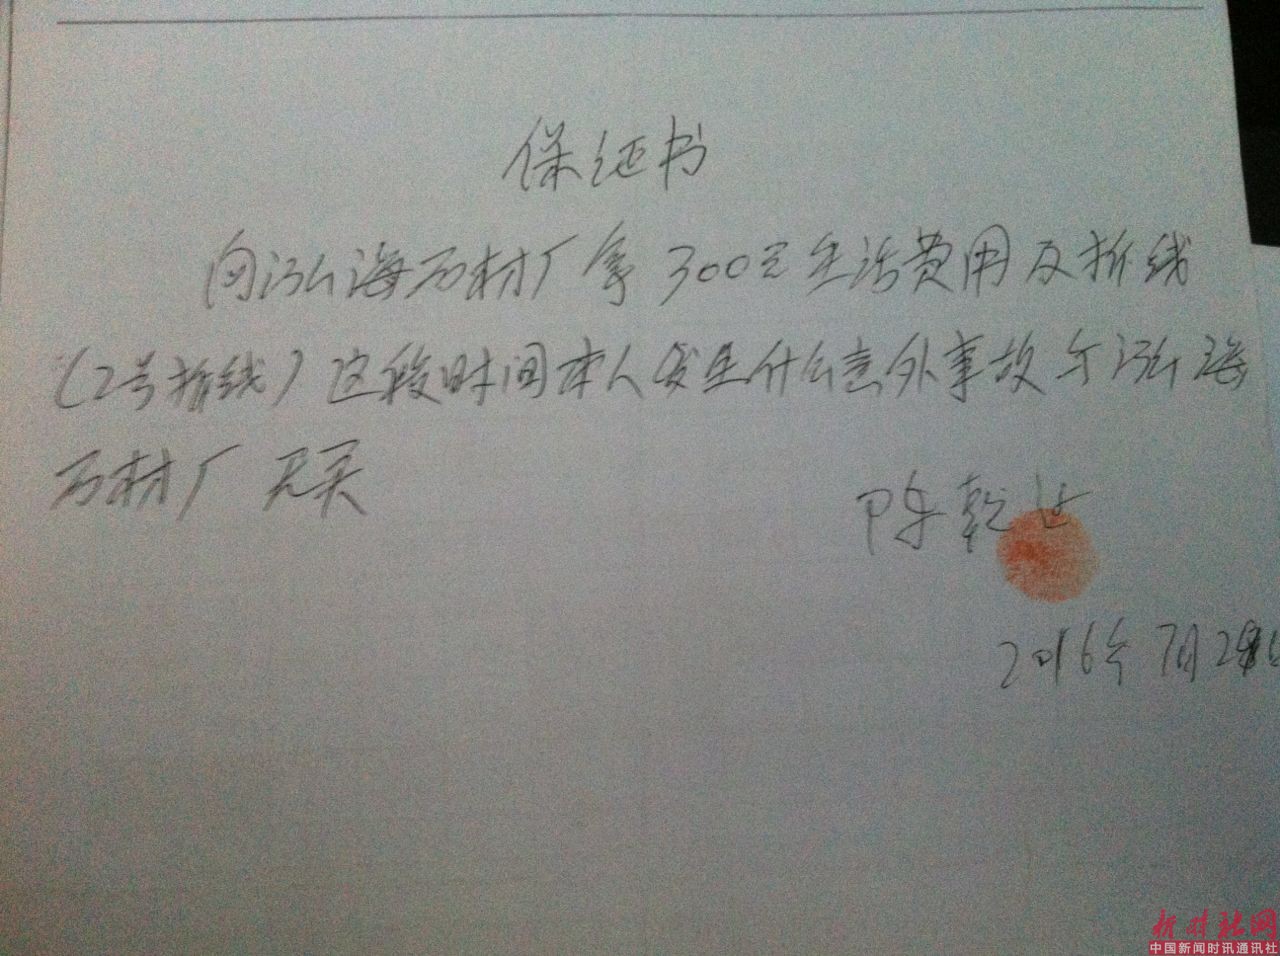 保证书
向泓海石材厂拿300元生活费用及拆线
(2号拆线)这段时间本人发生什么意外事故与泓海
石材厂无关
陈乾
2016年7月2日
中国新闻时讯通讯社